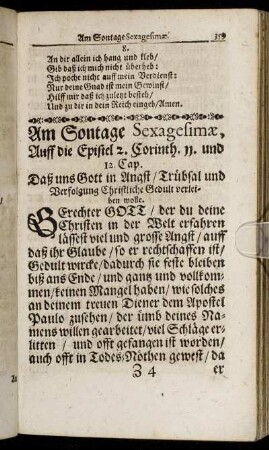 Am Sontage Sexagesimæ. 359
8.
An dir allein ich hang und kleb/
Gib daß ich mich nicht überheb:
Ich poche nicht auff mein Verdienst:
Nur deine Gnad ist mein Gewinst/
Hilff mir daß ich zuletz besteh/
Und zu dir in dein Reich eingeh/Amen.
Am Sontage Sexagesimæ,
Auff die Epistel 2. Corinth. 11. und
12. Cap.
Daß uns Gott in Angst/ Trübsal und
Verfolgung Christliche Gedult verlei-
hen wolle.
GErechter GOTT/ der du deine
Christen in der Welt erfahren
lässest viel und grosse Angst/ auff
daß ihr Glaube/ so er rechtschaffen ist/
Gedult wircke/dadurch sie feste bleiben
biß ans Ende/ und gantz und vollkom-
men/keinen Mangel haben/wie solches
an deinem treuen Diener dem Apostel
Paulo zusehen/ der ümb deines Na-
mens willen gearbeitet/viel Schläge er-
litten / und offt gefangen ist worden/
auch offt in Todes-Nöthen gewest/ da
Z 4 er